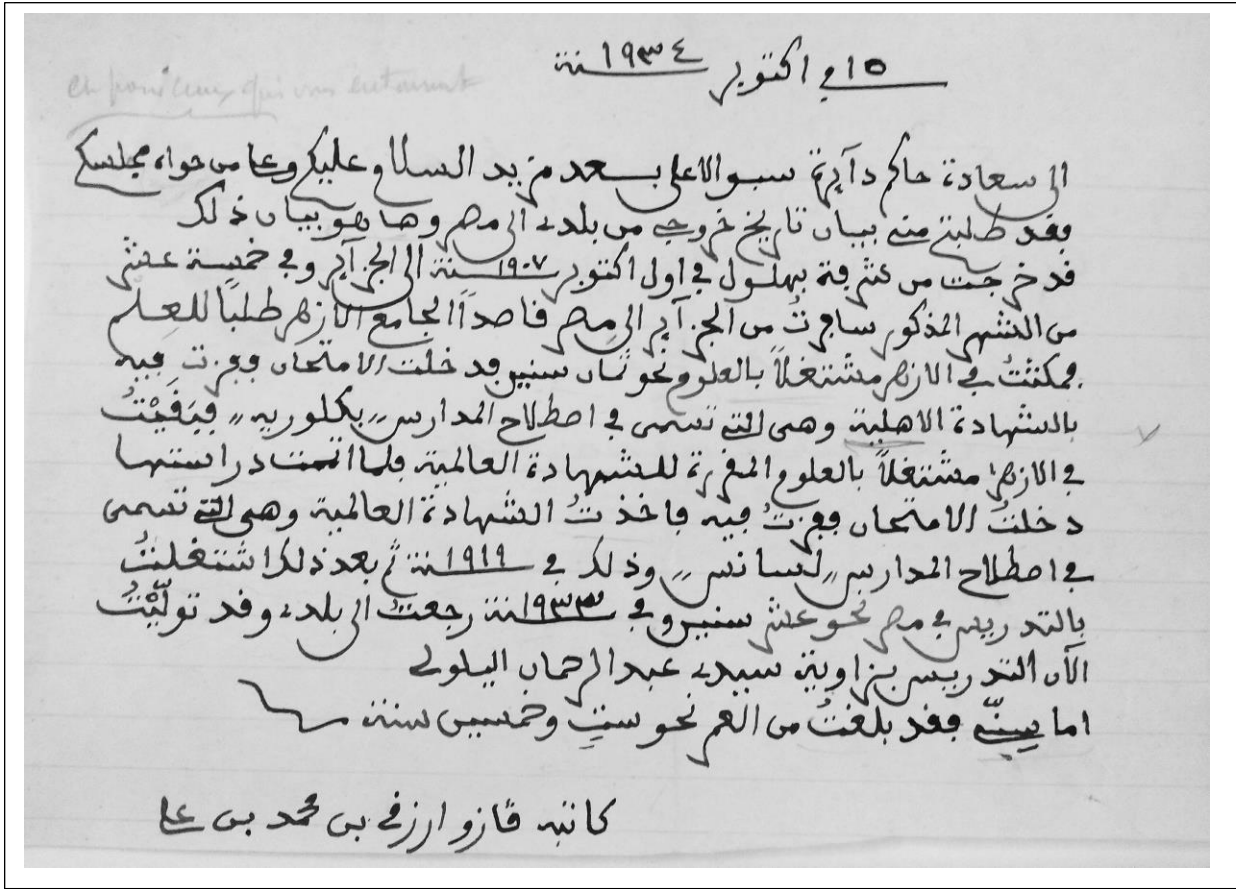 ١٥ في اكتوبر ١٩٣٤ سنة
et pour ceux qui vous entourent
الى سعادة حاكم دآيرة سبو الاعلى بعد مزيد السلام عليكم وعلى من حواه مجلسكم
فقد طلبتم مني بيان تاريخ خروجي من بلدي الى مصر وها هو بيان ذلك
قد خرجت من عشرفة بهلول في اول اكتوبر ١٩٠٧ سنة الى الجزآير وفي خمسة عشر
من الشهر المذكور سافرتُ من الجزآير الى مصر قاصداً الجامع الازهر طلباً للعلم
فمكثتُ في الازهر مشتغلاً بالعلوم نحو ثمان سنين فدخلت الامتحان ففزت فيه
بالشهادة الاهلية وهي التي تسمى في اصطلاح المدارس ,, بكلوريه ,, فبَقِيْتُ
في الازهر مشتغلاً بالعلوم المقررة للشهادة العالمية فلما اتممت دراستها
دخلتُ الامتحان ففزتُ فيه فاخذتُ الشهادة العالمية وهي التي تسمى
في اصطلاح المدارس ,, لسانس ,, وذلك في ١٩١٩ سنة ثم بعد ذلك اشتغلتُ
بالتدريس في مصر نحو عشر سنين وفي ١٩٣٣ سنة رجعتُ الى بلدي وقد تولّيْتُ
الآن التدريس بزاوية سيدي عبد الرحمان اليلولي
اما سِنّي فقد بلغتُ من العمر نحو ستٍ وخمسين سنة
كاتبه ڤازو ارزقي بن محمد بن علي